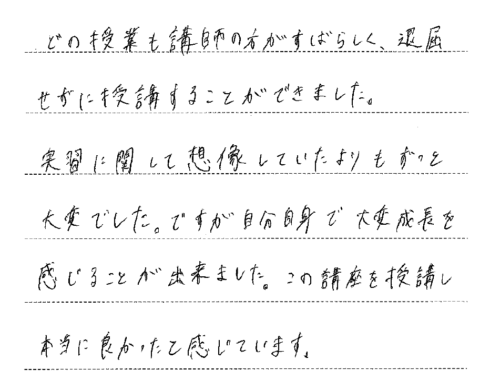 どの授業も講師の方がすばらしく、退屈
せずに授講することができました。
実習に関して想像していたよりもずっと
大変でした。ですが自分自身で大変成長を
感じることが出来ました。この講座を授講し
本当に良かったと感じています。